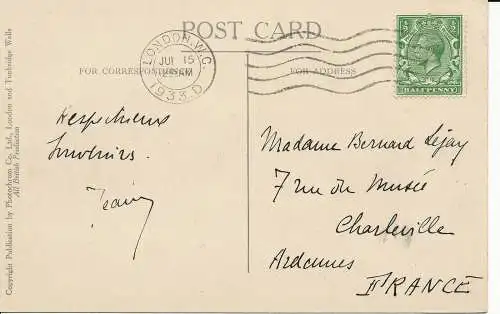 POST CARD
FOR CORRESPONDENCE
FOR ADDRESS
LONDON. W.C.
JUL 15
12 15 AM
1933. D
HALFPENNY
Respectueux
Souvenirs.
Madame Bernard Lejay
7 rue du Musée
Charleville
Ardennes
FRANCE
Copyright Publication by Photochrom Co. Ltd., London and Tunbridge Wells
All British Production